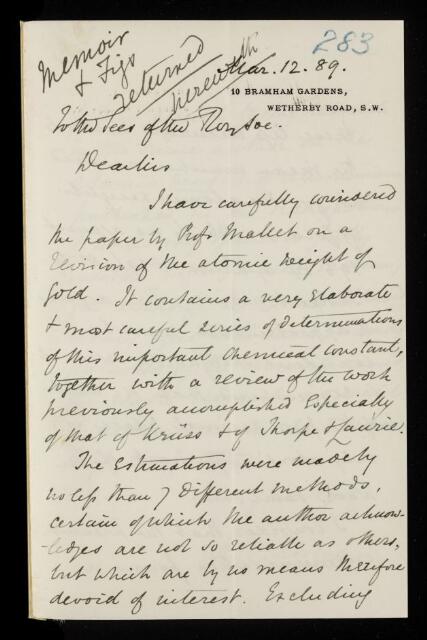 283
Memoir
& Figs
returned
herewith
Mar. 12. 89.
10 BRAMHAM GARDENS,
WETHERBY ROAD, S.W.
To the Secs of the Roy Soc.
Dear Sirs
I have carefully considered
the paper by Prof. Mallet on a
Revision of the atomic weight of
gold. It contains a very elaborate
& most careful series of determinations
of this important chemical constant,
together with a review of the work
previously accomplished Especially
of that of Krüss & of Thorpe & Laurie.
The Estimations were made by
no less than 7 different methods,
certain of which the author acknow-
-ledges are not so reliable as others,
but which are by no means therefore
devoid of interest. Excluding